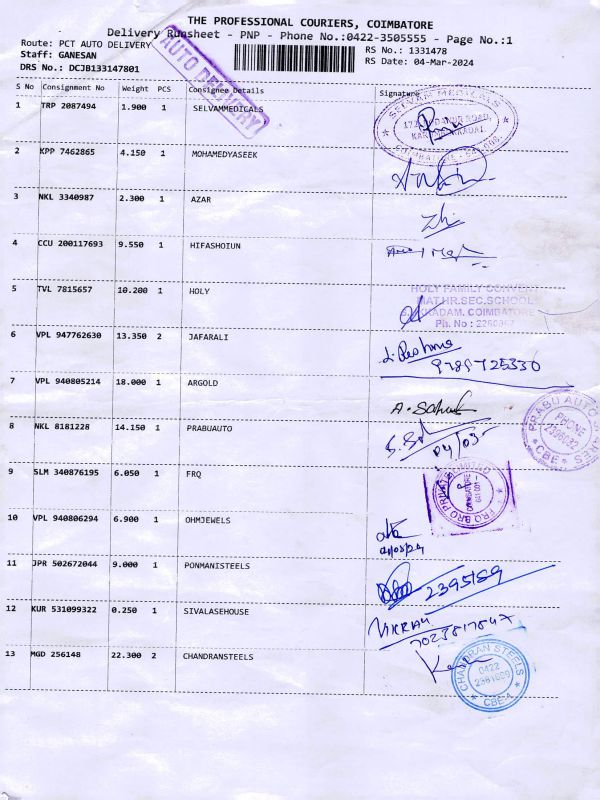 THE PROFESSIONAL COURIERS, COIMBATORE
Delivery Runsheet - PNP - Phone No.:0422-3505555 - Page No.:1
Route: PCT AUTO DELIVERY
RS No.: 1331478
Staff: GANESAN
RS Date: 04-Mar-2024
DRS No.: DCJB133147801
AUTO DELIVERY
S No Consignment No Weight PCS Consignee Details Signature
1 TRP 2087494 1.900 1 SELVAMMEDICALS
SELVAM MEDICALS
COIMBATORE
2 KPP 7462865 4.150 1 MOHAMEDYASEEK
3 NKL 3340987 2.300 1 AZAR
4 CCU 200117693 9.550 1 HIFASHOIUN
5 TVL 7815657 10.200 1 HOLY
HOLY FAMILY CONVENT
MAT.HR.SEC.SCHOOL
COIMBATORE
Ph. No :
6 VPL 947762630 13.350 2 JAFARALI
7 VPL 940805214 18.000 1 ARGOLD
8 NKL 8181228 14.150 1 PRABUAUTO
04/03
PRABU AUTO
PHONE
CBE
9 SLM 340876195 6.050 1 FRQ
COIMBATORE
10 VPL 940806294 6.900 1 OHMJEWELS
11 JPR 502672044 9.000 1 PONMANISTEELS
2395189
12 KUR 531099322 0.250 1 SIVALASEHOUSE
VIKRAM
13 MGD 256148 22.300 2 CHANDRANSTEELS
CHANDRAN STEELS
0422
CBE-1